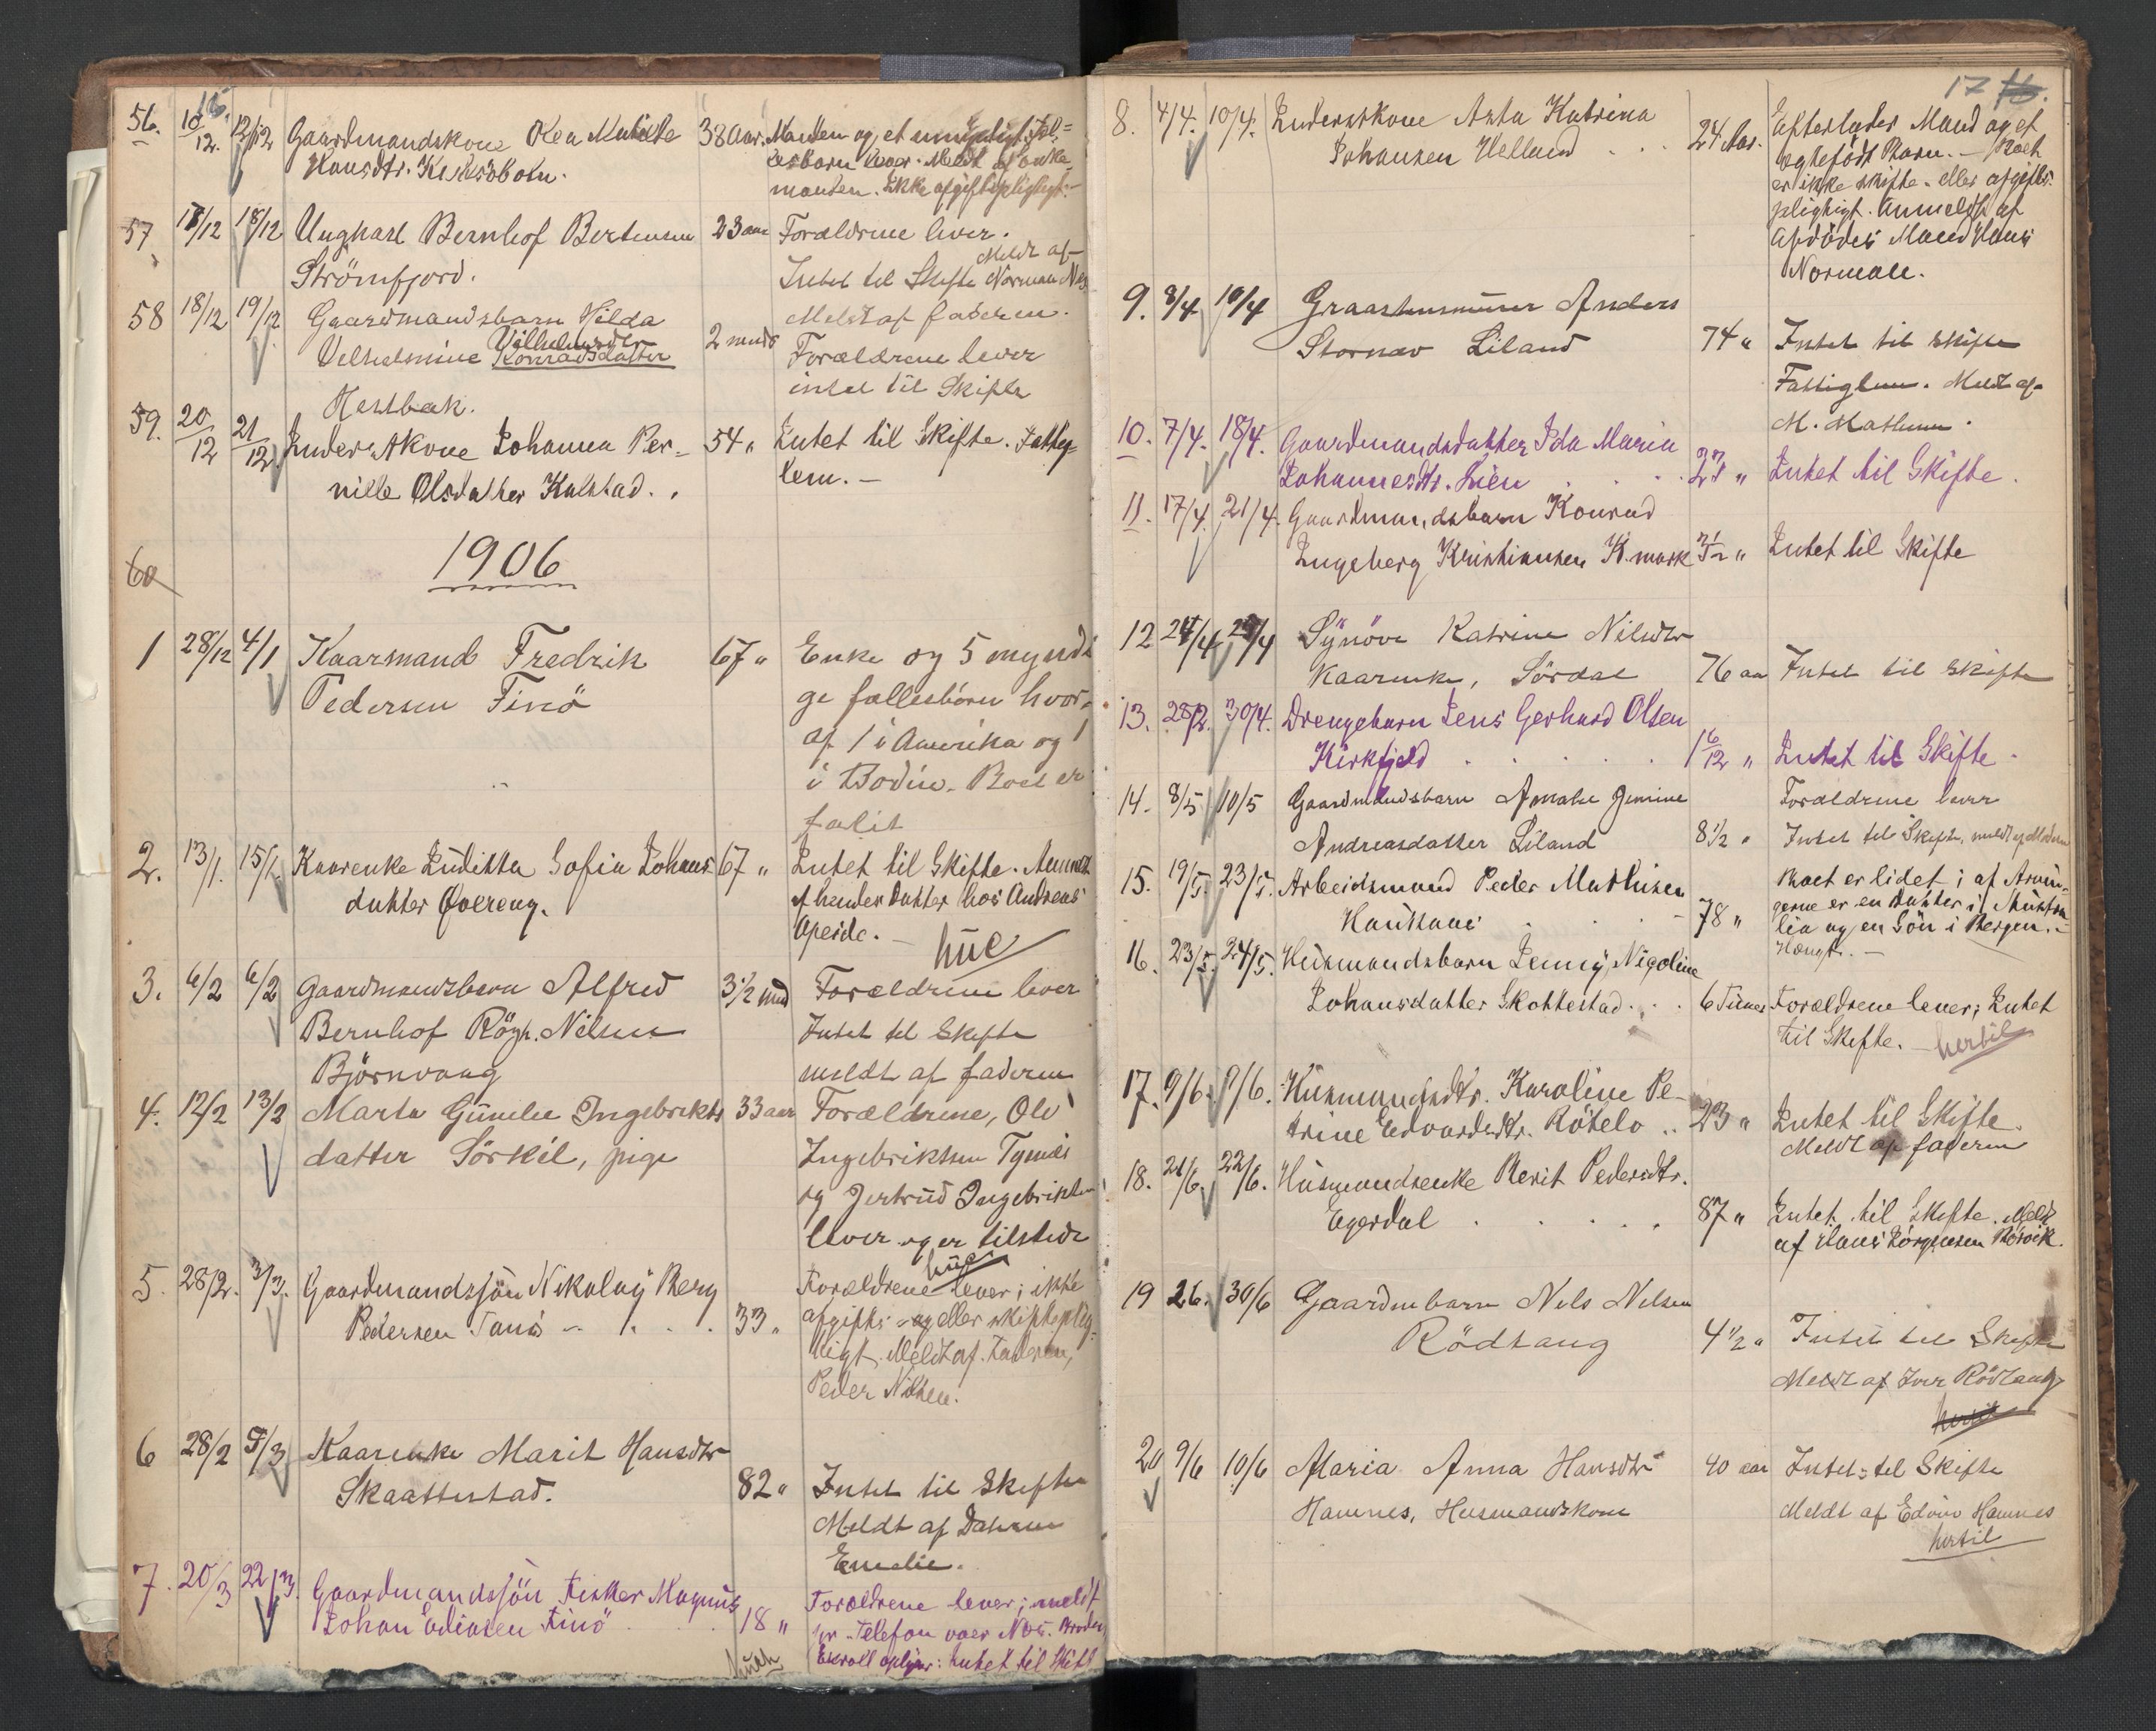 56. 10/12. 12/12 Gaardmandskone Rea Matilde 38 Aar. Manden og et umyndigt Fæl-
Hansdtr. lesbarn lever. Meldt af Enke-
manden. Ikke afgiftspligtigt.-
57 18/12 18/12 Ungkarl Bernhof Bertensen 23 aar Forældrene lever.
Meldt af
Strömfjord. Intet til Skifte Norman
58 18/12 19/12 Gaardmandsbarn Hilda Meldt af faderen.
Vilhelmsdtr
Velhelmine Konradsdatter 2 mndr Forældrene lever
intet til Skifte
Hestbak.
59. 20/12 21/12 Inderstkone Johanna Per- 54 " Intet til Skifte. Fattig-
nille Olsdatter Kalstad. . lem. -
60
1906
1 28/12 4/1 Kaarmand Fredrik 67 " Enke og 5 myndi
Pedersen Finö ge fællesbörn hvor-
af 1 i Amerika og 1
i Bodin. Boet er
falit
2. 13/1. 15/1 Kaarenke Juditta Sofia Johans- 67 " Intet til Skifte. Anmeldt
datter Øvereng. af hendes Datter hos Andreas
Apeide. -
3. 6/2 6/2 Gaardmandsbarn Alfred 3 1/2 mnd Forældrene lever
Bernhof Rögn. Nilsen Intet til Skifte
Björnvaag meldt af faderen
4. 12/2 13/2 Marta Gunelie Ingebrikts 33 aar Forældrene, Ole
datter Sörkil, pige Ingebriktsen Tynæs
og Jertrud Ingebriktsen
lever og er tilstede
5. 28/2. 3/3. Gaardmandssön Nikolay Berg Forældrene lever; ikke
Pedersen Tanö - . . . 33 " afgifts- og eller skifteplig-
tigt. Meldt af Faderen,
Peder Nilsen.
6 28/2 5/3 Kaarenke Marit Hansdtr
Skaattestad. 82 " Intet til Skifte
Meldt af Datteren
Emelie.
7. 20/3 22/3. Gaardmandssön Fisker Magnus Forældrene lever; meldt
Johan Edvasen Finö . . . 18 " pr. Telefon Broder
oplyser: Intet til Skift
17 16.
8. 4/4. 10/4. Inderstkone Asta Katrina 24 Aar. Efterlader Mand og et
Johansen Helland . . . ægtefödt Barn. - Boet
er ikke skifte- eller afgifts-
pligtigt. Anmeldt af
Afdödes Mand Hans
Normann.
9. 8/4 10/4 Graastensmurer Anders
Stornæv Liland 74 " Intet til skifte
Fattiglem. Meldt af
M. Mathisen.
10. 7/4. 18/4. Gaardmandsdatter Ida Maria
Johannesdtr. Lien . . . 27 " Intet til Skifte.
11. 17/4. 21/4. Gaardmandsbarn Konrad
Ingeberg Kristiansen K.mark " Intet til Skifte
12 24/4 28/4 Synöve Katrine Nilsdtr
Kaarenke, Sördal 76 aar Intet til skifte
13. 28/2. 30/4. Drengebarn Jens Gerhard Olsen
Kirkfjeld . . . . . 1 6/12 " Intet til Skifte.
14. 8/5 10/5 Gaardmandsbarn Amalie Jemine Forældrene lever
Andreasdatter Liland 8 1/2 " Intet til Skifte, meldt af Moderen
15. 19/5. 23/5. Arbeidsmand Peder Mathisen Boet er lidet; af Arvin-
gerne er en Datter i Austra
Haukaas . . . - 78 " lia og en Sön i Bergen. -
16. 23/5. 24/5. Husmandsbarn Jenny Nigoline
Johansdatter Skottestad. . . 6 Timer Forældrene lever; Intet
til Skifte. - hertil
17. 9/6. 9/6. Husmandsdtr. Karoline Pe-
trine Edvardsdtr. Rötelv .. 23 " Intet til Skifte.
Meldt af faderen
18. 21/6. 22/6. Husmandsenke Berit Pedersdtr.
Egerdal . . . . . 87 " Intet til Skifte. Meldt
af Hans Jörgensen Rörvik.
19 26. 30/6 Gaardmbarn Nels Nelsen
Rödsang 4 1/2 " Intet til Skifte
Meldt af Iver Rödsang
hertil
20 9/6 10/6 Maria Anna Hansdtr 40 aar Intet til Skifte
Hamnes, Husmandskone Meldt af Edvin Hamnes
hertil